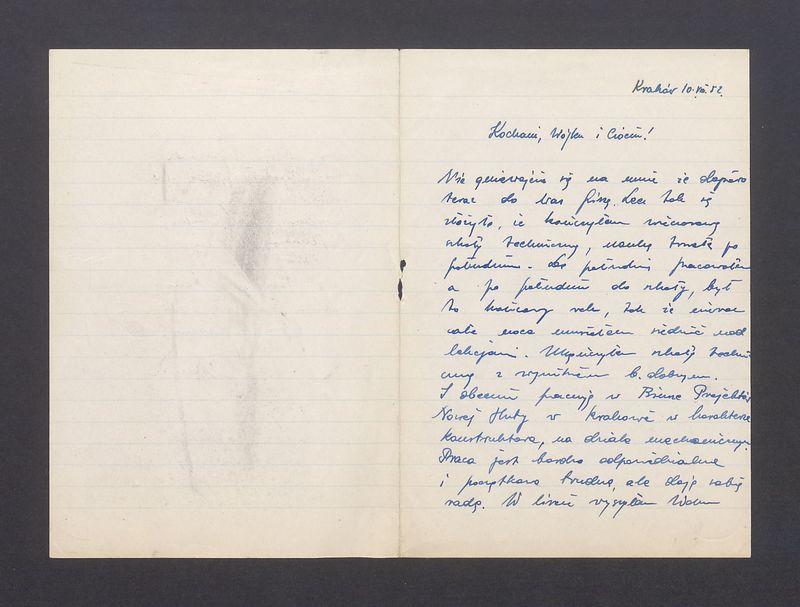 Kraków 10.VII.52.
Kochani, Wujku i Ciociu!
Nie gniewajcie się na mnie że dopiero
teraz do Was piszę. Lecz tak się
złożyło, że kończyłem
szkołę techniczną, nauka trwała po
południu. Do południa pracowałem
a po południu do szkoły, był
to końcowy rok, tak że nieraz
całe noce musiałem siedzieć nad
lekcjami. Ukończyłem szkołę techni
czną z wynikiem b. dobrym.
I obecnie pracuję w Biurze Projektów
Nowej Huty w Krakowie w charakterze
konstruktora, na dziale mechanicznym.
Praca jest bardzo odpowiedzialna
i początkowo trudna, ale daję sobie
radę. W liście wysyłam Wam